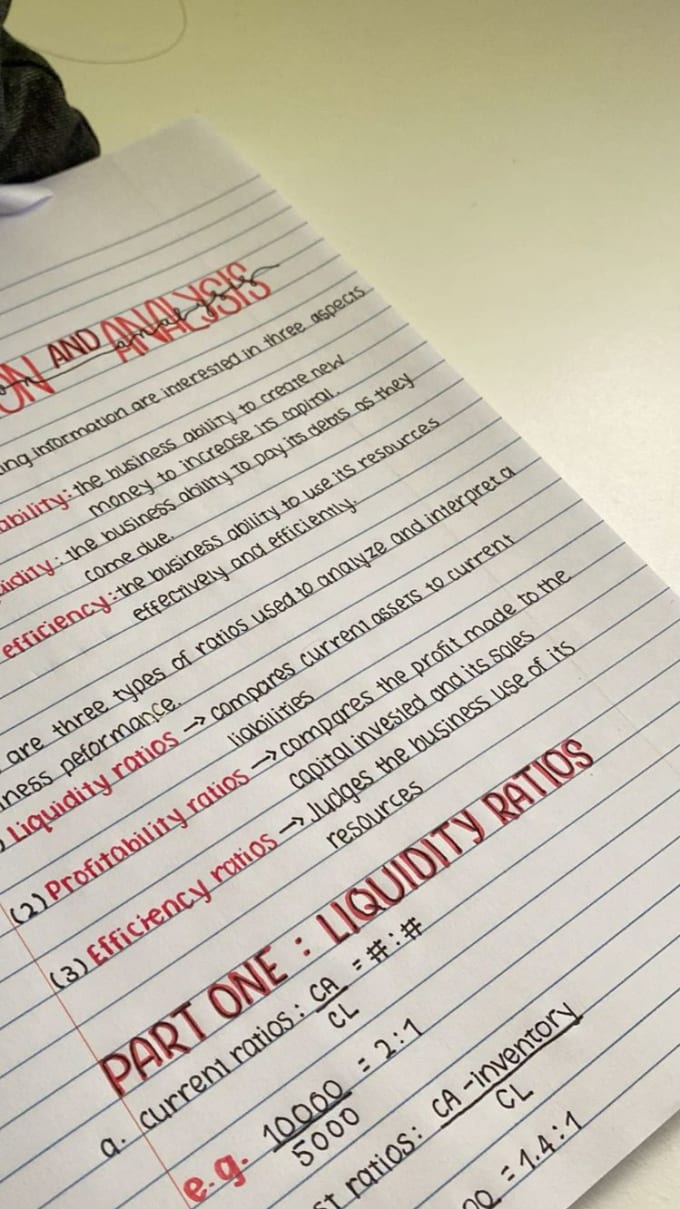 ON AND ANALYSIS
analysis
ing information are interested in three aspects
ability: the business ability to create new
money to increase its capital.
uidity: the business ability to pay its debts as they
come due.
efficiency: the business ability to use its resources
effectively and efficiently.
are three types of ratios used to analyze and interpret a
iness peformance.
) Liquidity ratios → compares current assets to current
liabilities
(2) Profitability ratios → compares the profit made to the
capital invested and its sales
(3) Efficiency ratios → Judges the business use of its
resources
PART ONE : LIQUIDITY RATIOS
a. current ratios: CA = #:#
CL
e.g. 10000 = 2:1
5000
st ratios: CA - inventory
CL
= 1.4:1